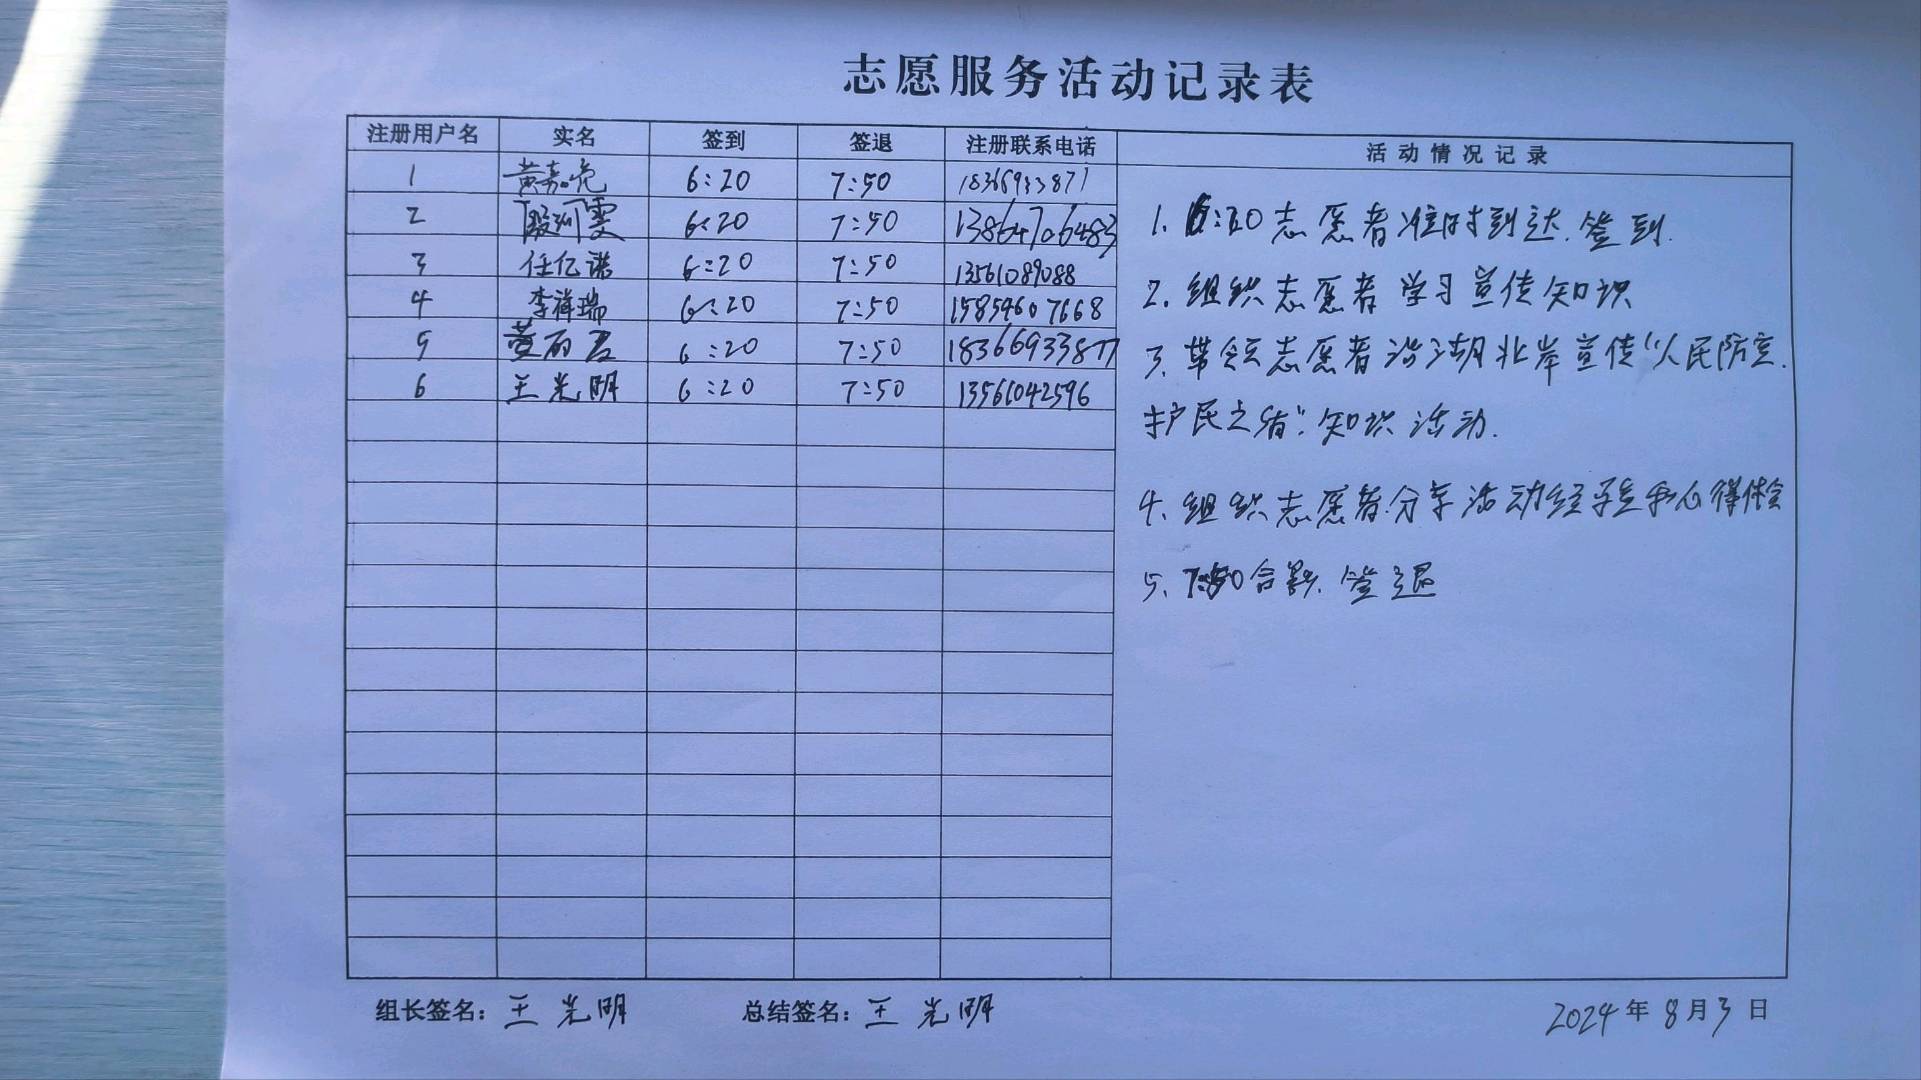 志愿服务活动记录表
注册用户名 实名 签到 签退 注册联系电话 活动情况记录
1 黄嘉亮 6:20 7:50 18366933871
2 殷 雯 6:20 7:50 13864706483
3 任亿诺 6:20 7:50 13561089088
4 李祥瑞 6:20 7:50 15859607668
5 黄丽君 6:20 7:50 18366933877
6 王光明 6:20 7:50 13561042596
1. 6:20志愿者准时到达.签到.
2. 组织志愿者学习宣传知识
3. 带领志愿者沿湖北岸宣传“人民防空.
护民之盾”知识活动.
4. 组织志愿者分享活动经验和心得体会
5. 7:50合影.签退
组长签名：王光明 总结签名：王光明 2024年8月3日